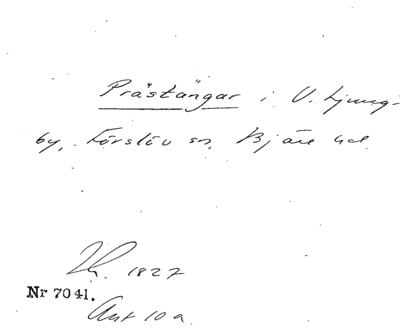 Prästängar i V. Ljung-
by, Förslöv sn, Bjäre hd.
Th. 1827
Nr 7041.
Ant 10 a